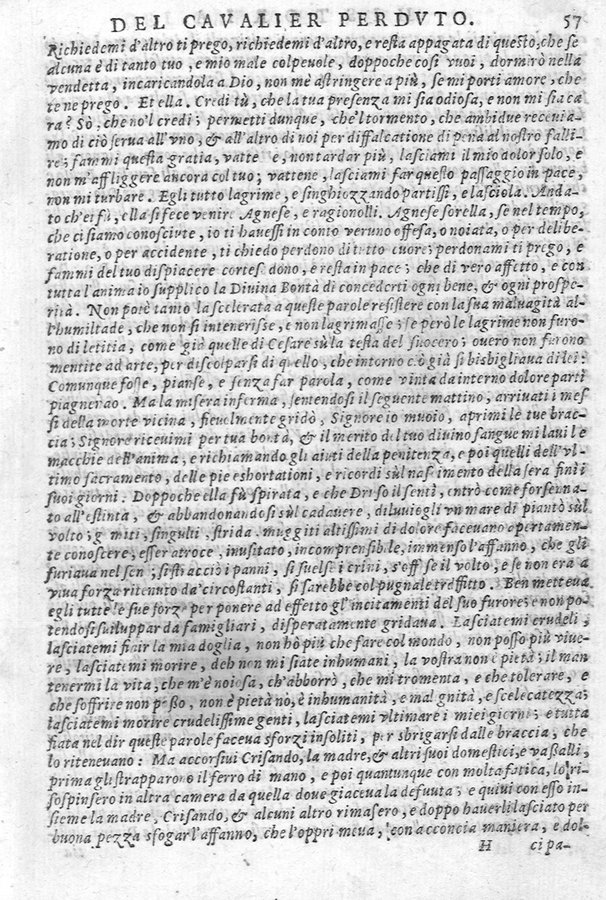 DEL CAVALIER PERDVTO. 57
Richiedemi d'altro ti prego, richiedemi d'altro, e resta appagata di questo, che se
alcuna è di tanto tuo, e mio male colpeuole, doppoche cosi vuoi, dormirò nella
vendetta, incaricandola a Dio, non me astringere a più, se mi porti amore, che
te ne prego. Et ella. Credi tù, che la tua presenza mi sia odiosa, e non mi sia ca
ra? Sò, che no'l credi; permetti dunque, che'l tormento, che ambidue receuia-
mo di ciò serua all'vno, & all'altro di noi per diffalcatione di pena al nostro falli-
re; fammi questa gratia, vatte e, non tardar più, lasciami il mio dolor solo, e
non m'affliggere ancora col tuo; vattene, lasciami far questo passaggio in pace,
non mi turbare. Egli tutto lagrime, e singhiozzando partissi, e lasciola. Anda-
to ch'ei fù, ella si fece venire Agnese, e ragionolli. Agnese sorella, se nel tempo,
che ci siamo conosciute, io ti hauessi in conto veruno offesa, o noiata, o per delibe-
ratione, o per accidente, ti chiedo perdono di tutto cuore; perdonami ti prego, e
fammi del tuo dispiacere cortese dono, e resta in pace; che di vero affetto, e con
tutta l'anima io supplico la Diuina Bontà di concederti ogni bene, & ogni prospe-
rità. Non potè tanto la scelerata a queste parole resistere con la sua maluagità al-
l'humiltade, che non si intenerisse, e non lagrimasse; se però le lagrime non furo-
no di letitia, come già quelle di Cesare sù la testa del suocero; ouero non furono
mentite ad arte, per discolparsi di quello, che intorno ciò già si bisbigliaua di lei:
Comunque fosse, pianse, e senza far parola, come vinta da interno dolore partì
piagnendo. Ma la misera inferma, sentendosi il seguente mattino, arriuati i mes
si della morte vicina, fieuelmente gridò, Signore io muoio, aprimi le tue brac-
cia; Signore riceuimi per tua bontà, & il merito del tuo diuino sangue mi laui le
macchie dell'anima, e richiamando gli aiuti della penitenza, e poi quelli dell'vl-
timo sacramento, delle pie eshortationi, e ricordi sùl nascimento della sera finì i
suoi giorni. Doppoche ella fù spirata, e che Driso il sentì, entrò come forsenna-
to all'estinta, & abbandonandosi sùl cadauere, diluuiogli vn mare di pianto sùl
volto; g miti, singulti, strida, muggiti altissimi di dolore faceuano apertamen-
te conoscere, esser atroce, inusitato, incomprensibile, immenso l'affanno, che gli
furiaua nel sen; si stracciò i panni, si suelse i crini, s'offese il volto, e se non era a
viua forza ritenuto da' circostanti, si sarebbe col pugnale trafitto. Ben metteua
egli tutte le sue forze per ponere ad effetto gl'incitamenti del suo furore; e non po-
tendosi suiluppar da famigliari, disperatamente gridaua. Lasciatemi crudeli,
lasciatemi finir la mia doglia, non hò più che fare col mondo, non posso più viue-
re, lasciatemi morire, deh non mi siate inhumani, la vostra non è pietà; il man
tenermi la vita, che m'è noiosa, ch'abborrò, che mi tromenta, e che tolerare, e
che soffrire non posso, non è pietà nò, è inhumanità, e malignità, e sceleratezza;
lasciatemi morire crudelissime genti, lasciatemi vltimare i miei giorni; e tutta
fiata nel dir queste parole faceua sforzi insoliti, per sbrigarsi dalle braccia, che
lo riteneuano: Ma accorsiui Crisando, la madre, & altri suoi domestici, e vassalli,
prima gli strapparono il ferro di mano, e poi quantunque con molta fatica, lo ri-
sospinsero in altra camera da quella doue giaceua la defunta; e quiui con esso in-
sieme la madre, Crisando, & alcuni altro rimasero, e doppo hauerli lasciato per
buona pezza sfogar l'affanno, che l'opprimeua, con acconcia maniera, e dol-
H cipa-